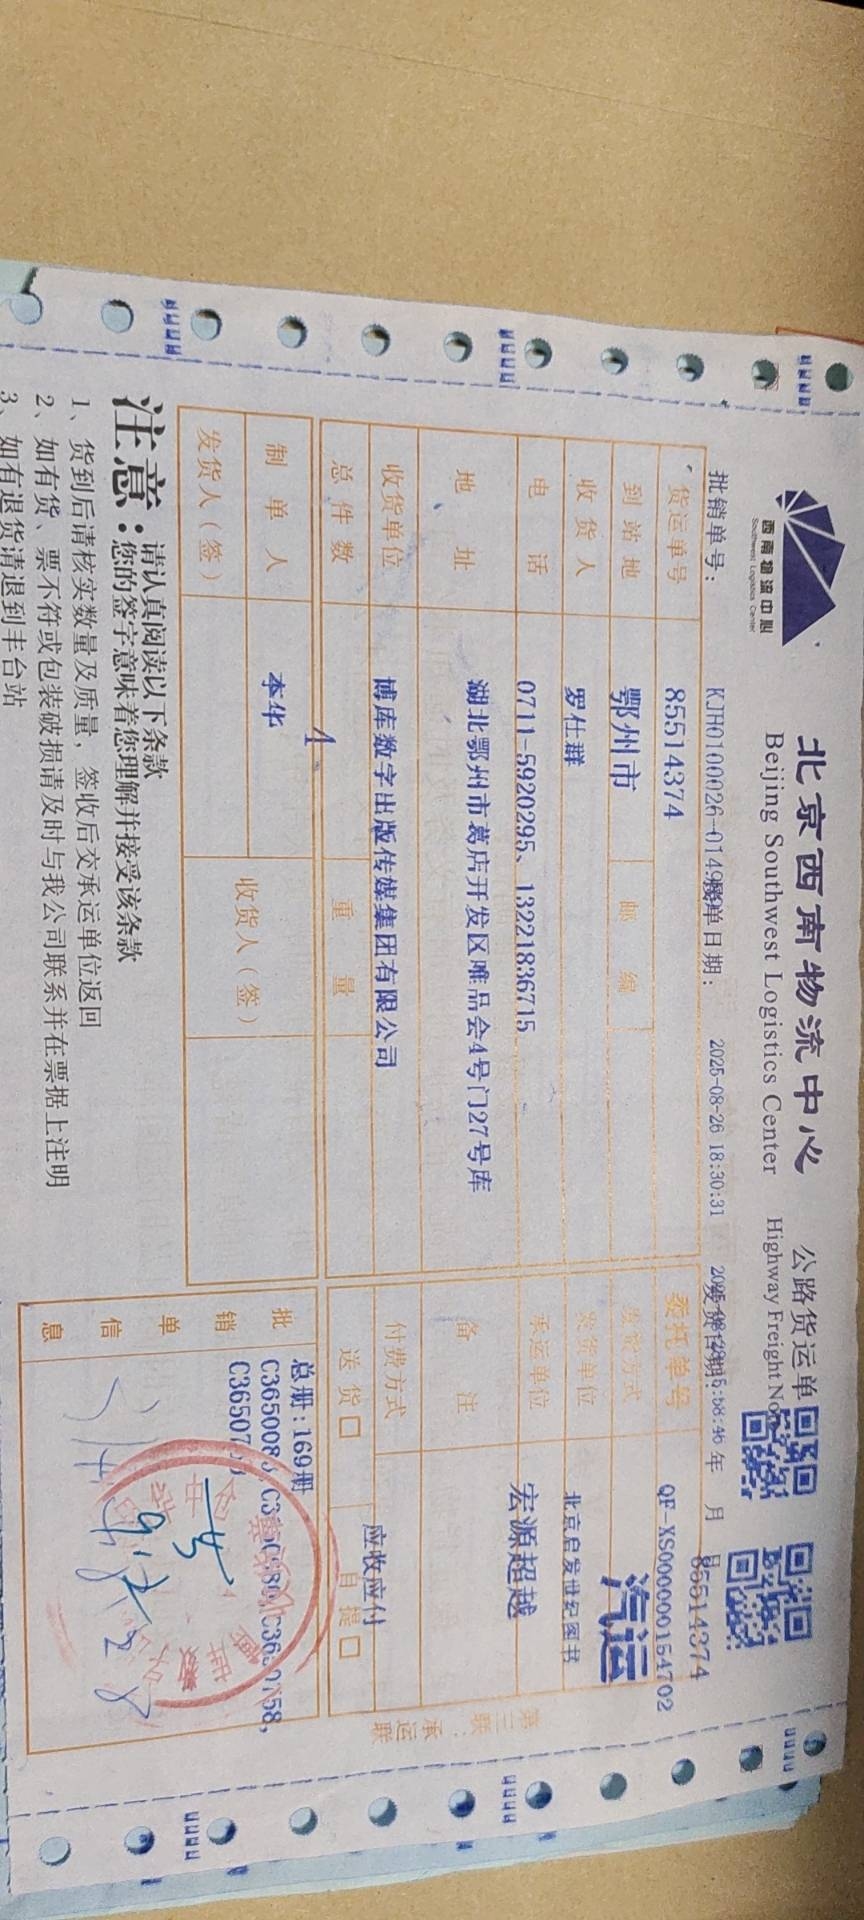 西南物流中心
Southwest Logistics Center
北京西南物流中心
Beijing Southwest Logistics Center
公路货运单
Highway Freight No
批销单号：
KJH0100026-0149
接单日期：
2025-08-26 18:30:31
发货日期：
年 月 日
85514374
货运单号 85514374
委托单号 QF-XS000000154702
到站地 鄂州市 邮编
发货方式 汽运
收货人 罗仕群
发货单位 北京启发世纪图书
电话 0711-5920295、13221836715
承运单位 宏源超越
地址 湖北鄂州市葛店开发区唯品会4号门27号库
备注
收货单位 博库数字出版传媒集团有限公司
付费方式 应收应付
总件数 4 重量
送货□ 自提□
制单人 本华
收货人（签）
发货人（签）
批销单信息
总册：169册
第三联：承运联
注意：
请认真阅读以下条款
您的签字意味着您理解并接受该条款
1、货到后请核实数量及质量，签收后交承运单位返回
2、如有货、票不符或包装破损请及时与我公司联系并在票据上注明
3、如有退货请退到丰台站